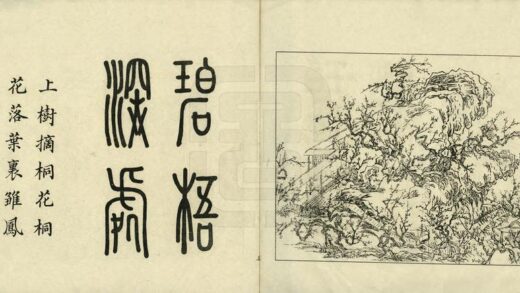 碧梧
深處
上樹摘桐花桐
花落葉裏雖鳳